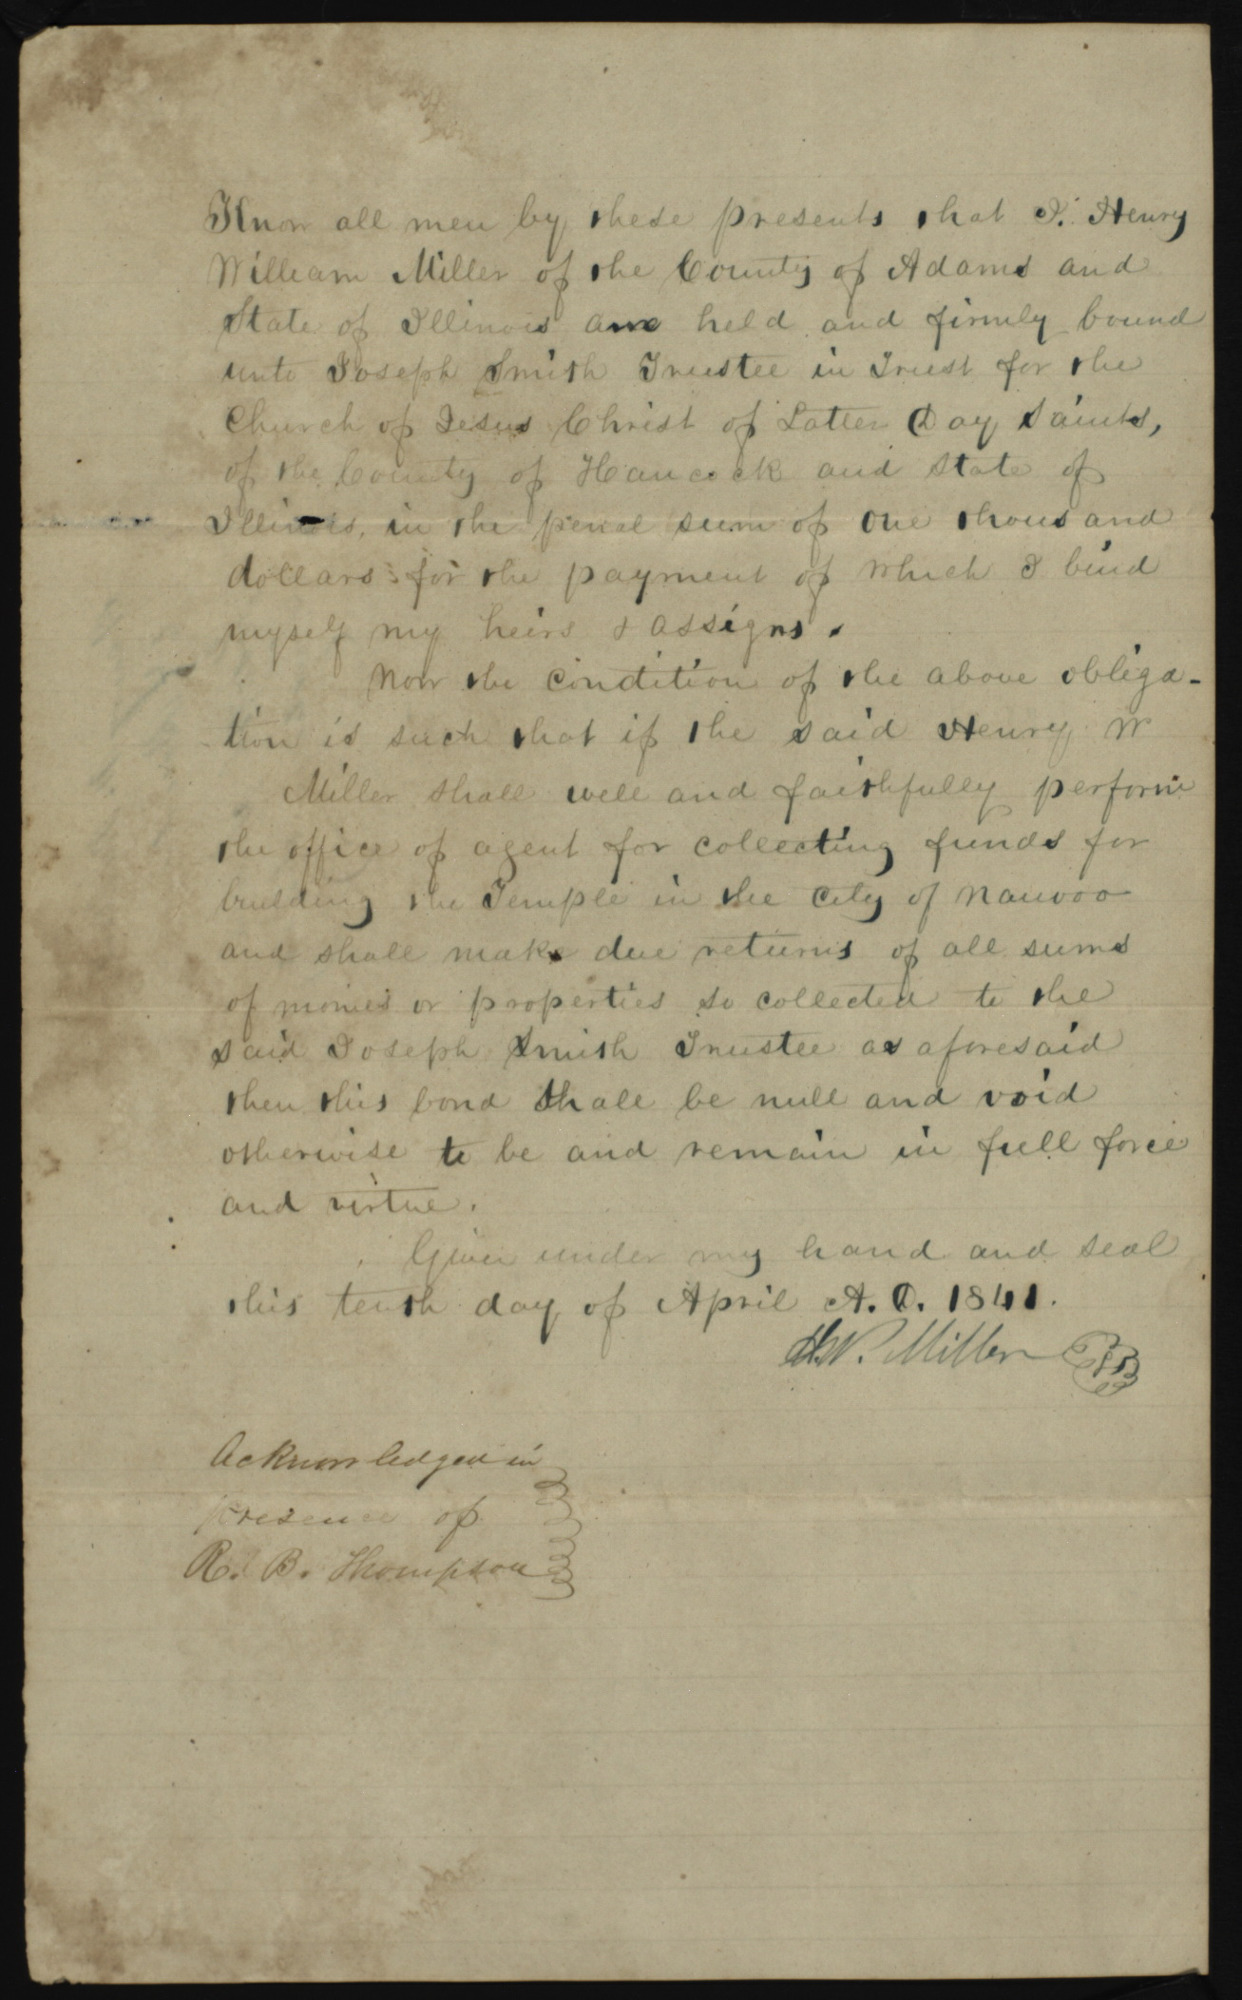 Know all men by these presents that I. Henry
William Miller of the County of Adams and
State of Illinois am held and firmly bound
unto Joseph Smith Trustee in Trust for the
Church of Jesus Christ of Latter Day Saints,
of the County of Hancock and State of
Illinois, in the penal sum of one thousand
dollars for the payment of which I bind
myself my heirs & assigns.
Now the condition of the above obliga-
tion is such that if the said Henry W
Miller shall well and faithfully perform
the office of agent for collecting funds for
building the Temple in the City of Nauvoo
and shall make due returns of all sums
of monies or properties so collected to the
said Joseph Smith Trustee as aforesaid
then this bond shall be null and void
otherwise to be and remain in full force
and virtue.
Given under my hand and seal
this tenth day of April A.D. 1841.
H.W. Miller
Acknowledged in
presence of
R. B. Thompson